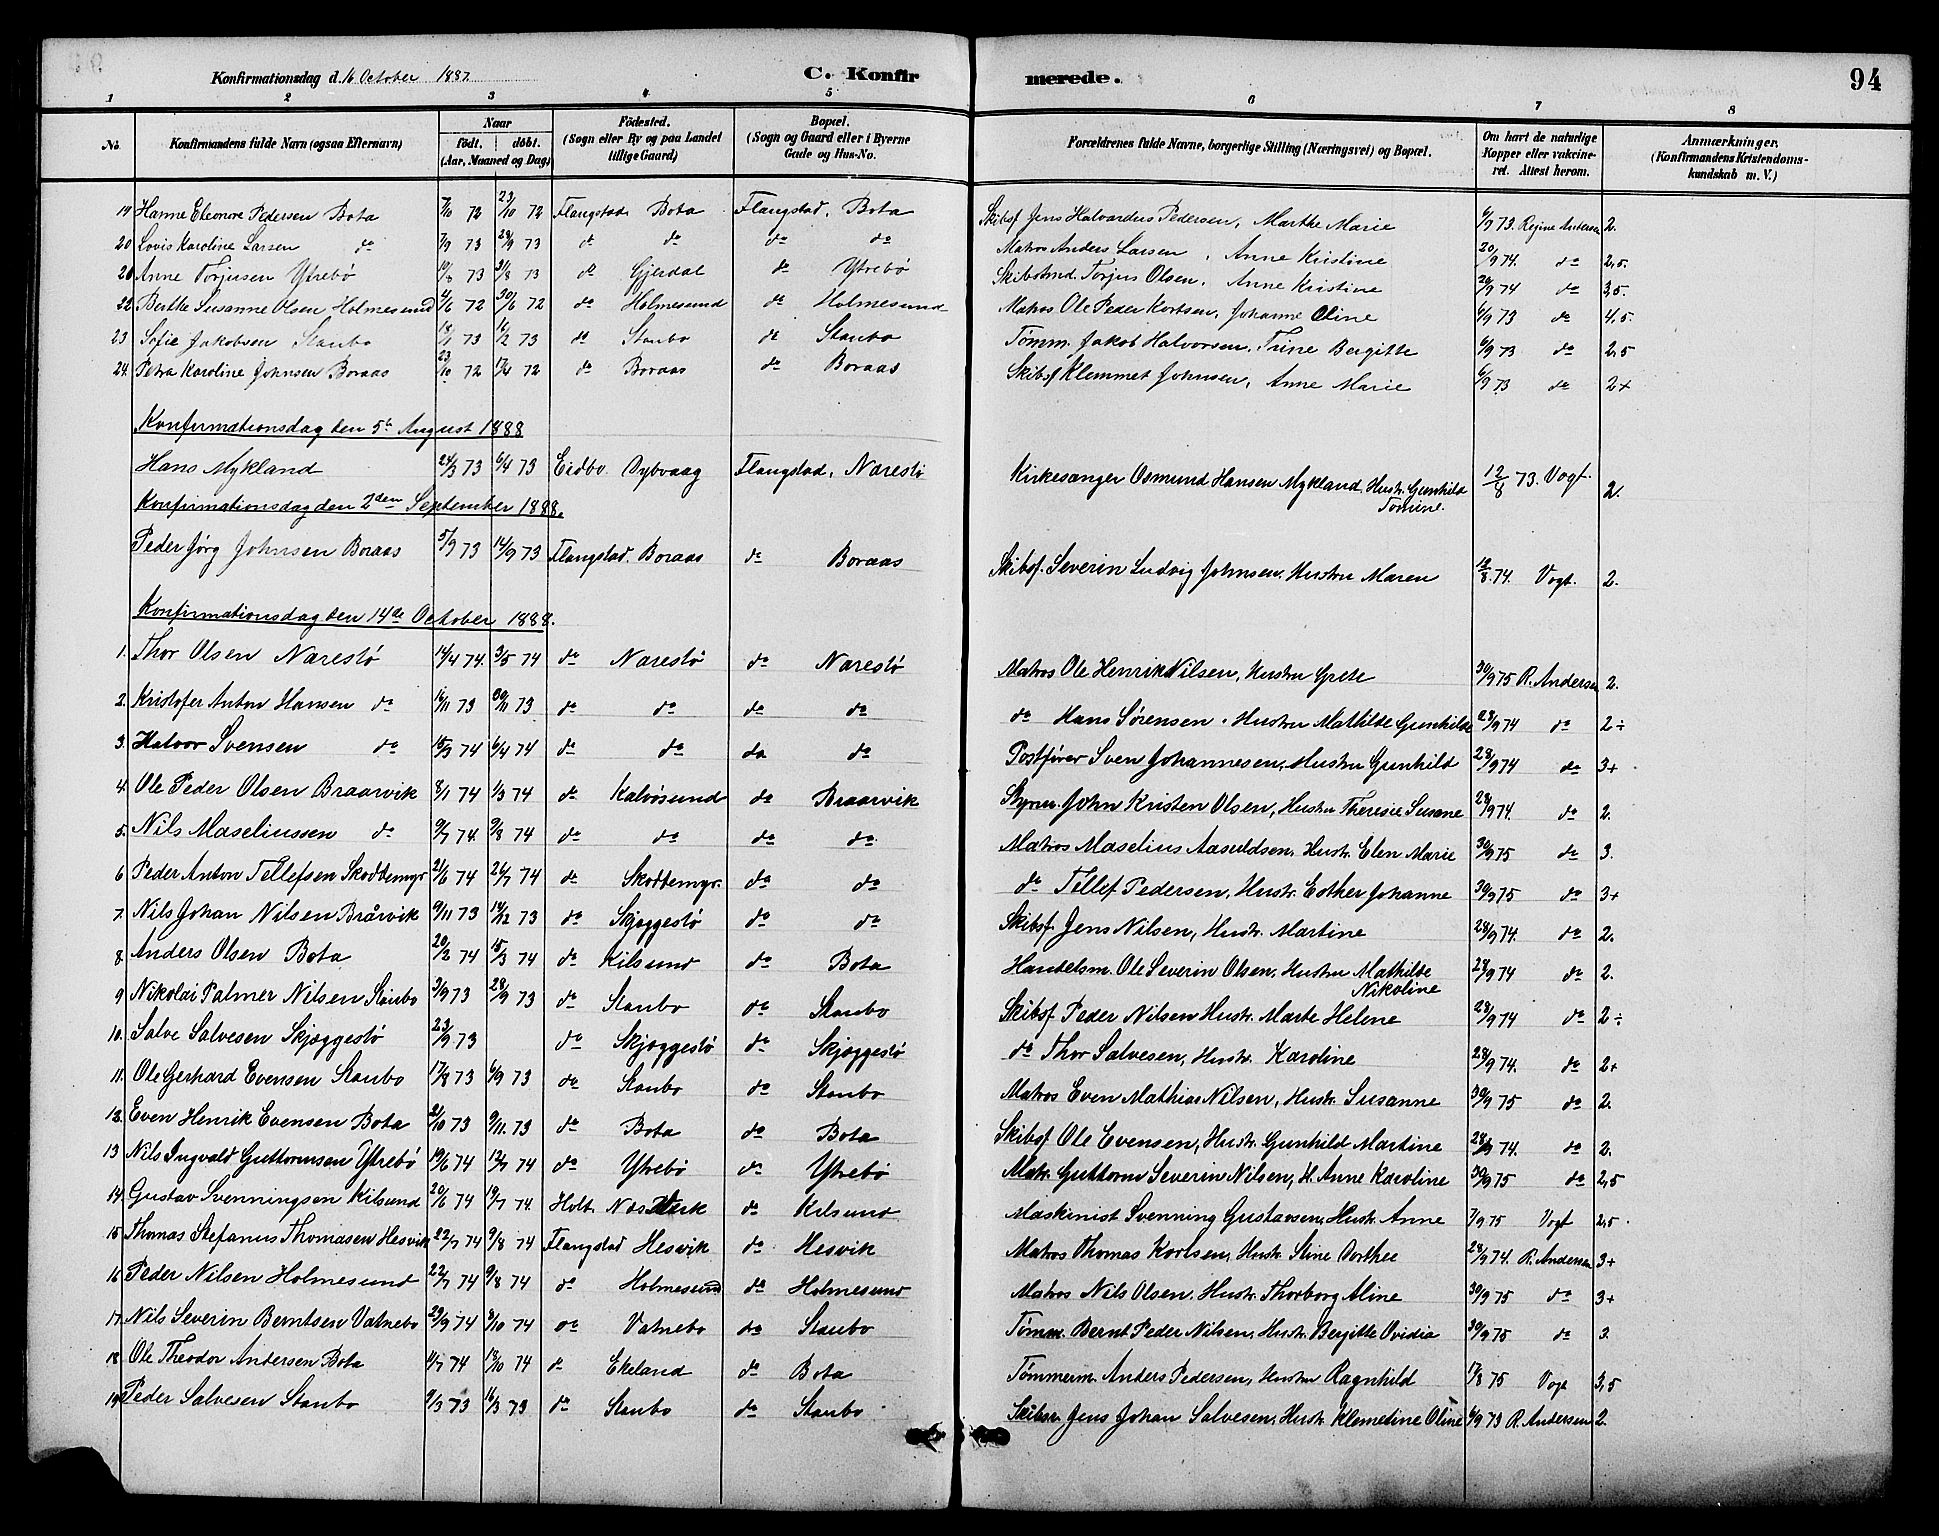 Konfirmationsdag d. 16 October 1887. C. Konfirmerede. 94
1 2 3 4 5 6 7 8
No. Konfirmandens fulde Navn (ogsaa Efternavn) Naar födt. döbt. (Aar, Maaned og Dag) Födested. (Sogn eller By og paa Landet tillige Gaard) Bopæl. (Sogn og Gaard eller i Byerne Gade og Hus-No. Forældrenes fulde Navne, borgerlige Stilling (Næringsvei) og Bopæl. Om havt de naturlige Kopper eller vakcineret. Attest herom. Anmærkninger. (Konfirmandens Kristendomskundskab m. V.)
19 Hanne Eleonore Pedersen Bota 7/10 72 23/10 72 Flangstad. Bota Flangstad. Bota Skibsf. Jens Halvardus Pedersen, Marthe Marie 6/9 73 Regine Andersen 2.
20 Lovis Karoline Larsen do 7/9 73 28/9 73 do do do do Matros Anders Larsen, Anne Kristine 20/9 74. do 2,5.
20 Anne Torjusen Ytrebö 73 31/8 73 do Gjerdal do Ytrebö Skibstmd. Torjus Olsen, Anne Kristine 20/9 74 do 3,5.
22. Berthe Susanne Olsen Holmesund 72 30/6 72 do Holmesund do Holmesund Matros Ole Peder Kortsen, Johanne Oline 6/9 73 do 4,5.
23 Sofie Jakobsen Staubo 18/1 73 16/2 73 do Staubo do Staubo Tømm. Jakob Halvorsen, Trine Bergitte 6/9 73 do 2,5
24. Petra Karoline Johnsen Boraas 23/10 72 72 do Boraas do Boraas Skibsf Klemmet Johnsen, Anne Marie 6/9 73 do 2+
Konfirmationsdag den 5te August 1888
Hans Mykland 24/3 73 6/4 73 Eidbo Dybvaag Flangstad, Narestö Kirkesanger Osmund Hansen Mykland, Hustr. Gunhild Tomine. 12/8 73. Vogt. 2.
Konfirmationsdag den 2den September 1888.
Peder Jörg Johnsen Boraas 5/9 73 14/9 73 Flangstad. Boraas do Boraas Skibsf. Severin Ludvig Johnsen, Hustru Maren 12/8. 74. Vogt. 2.
Konfirmationsdag den 14de October 1888.
1. Thor Olsen Narestö 14/4 74. 3/5 74 do Narestö do Narestö Matros Ole Henrik Nilsen, Hustru Grete 30/9 75 R. Andersen 2.
2. Kristofer Anton Hansen do 16/11 73 30/11 73 do do do do do Hans Sørensen, Hustru Mathilde Gunhilde 28/9 74 do 2÷
3. Halvor Svensen do 15/3 74 6/4 74 do do do do Postfører Sven Johannesen, Hustru Gunhild 28/9 74 do 3+
4. Ole Peder Olsen Braarvik 8/1 74 1/3 74 do Kalvösund do Braarvik Styrm. John Kristen Olsen, Hustru Theresie Susane 28/9 74. do 2.
5. Nils Maseliussen do 9/7 74. 9/8 74 do do do do Matros Maselius Aasuldsen, Hustr. Elen Marie 30/9 75 do 3.
6 Peder Anton Tellefsen Skodtemyr 21/6 74 26/7 74 do Skodtemyr. do do do Tellef Pedersen, Hustr. Esther Johanne 30/9 75 do 3+
7. Nils Johan Nilsen Brårvik 9/11 73 14/12 73 do Skjeggestö do do Skibsf. Jens Nilsen, Hustr. Martine 28/9 74. do 2.
8. Anders Olsen Bota 20/2 74 15/3 74 do Kilsund do Bota Handelsm. Ole Severin Olsen, Hustru Mathilde Nikoline 28/9 74 do 2.
9 Nikolai Palmer Nilsen Staubo 3/9 73 28/9 73 do Staubo do Staubo Skibsf. Peder Nilsen Hustr. Marte Helene 28/9 74 do 2÷
10. Salve Salvesen Skjæggestö 23/9 73 do Skjæggestö do Skjæggestö do Thor Salvesen, Hustr. Karoline 28/9 74. do 2+
11. Ole Gerhard Evensen Staubo 17/8 73 6/9 73 do Staubo do Staubo Matros Even Mathias Nilsen, Hustr. Susanne 30/9 75 do 2.
12. Even Henrik Evensen Bota 2/10 73 9/11. 73 do Bota do Bota Skibsf. Ole Evensen, Hustr. Gunhild Martine 28/9 74. do 2.
13 Nils Ingvald Guttormsen Ytrebö 19/6 74 12/7 74 do Ytrebö do Ytrebö Matr. Guttorm Severin Nilsen, H. Anne Karoline 30/9 75 do 2,5
14. Gustav Svenningsen Kilsund 20/6 74 19/7 74. Holt. Næs Værk do Kilsund Maskinist Svenning Gustavsen, Hustr. Anne 7/9 75 Vogt 2,5.
15 Thomas Stefanus Thomasen Hesvik 22/7 74 9/8 74 Flangstad Hesvik do Hesvik Matros Thomas Kortsen, Hustr. Stine Dorthee 28/9 74. R. Andersen 3+
16 Peder Nilsen Holmesund 22/7 74 9/8 74 do Holmesund do Holmesund Matros Nils Olsen, Hustr. Thorborg Aline 30/9 75 do 3+
17. Nils Severin Berntsen Vatnebo 29/9 74 8/10 74 do Vatnebo do Staubo Tømm. Bernt Peder Nilsen, Hustr. Bergitte Ovidia 30/9 75 do 3
18 Ole Theodor Andersen Bota 74 18/10 74 do Ekeland do Bota Tømmerm. Anders Pedersen, Hustru Ragnhild 17/8 75 Vogt 3,5
19 Peder Salvesen Staubo 9/3 73 16/3 73 do Staubo do Staubo Skibsr. Jens Johan Salvesen, Hustr. Klemetine Oline 6/9 73 R. Andersen 2.